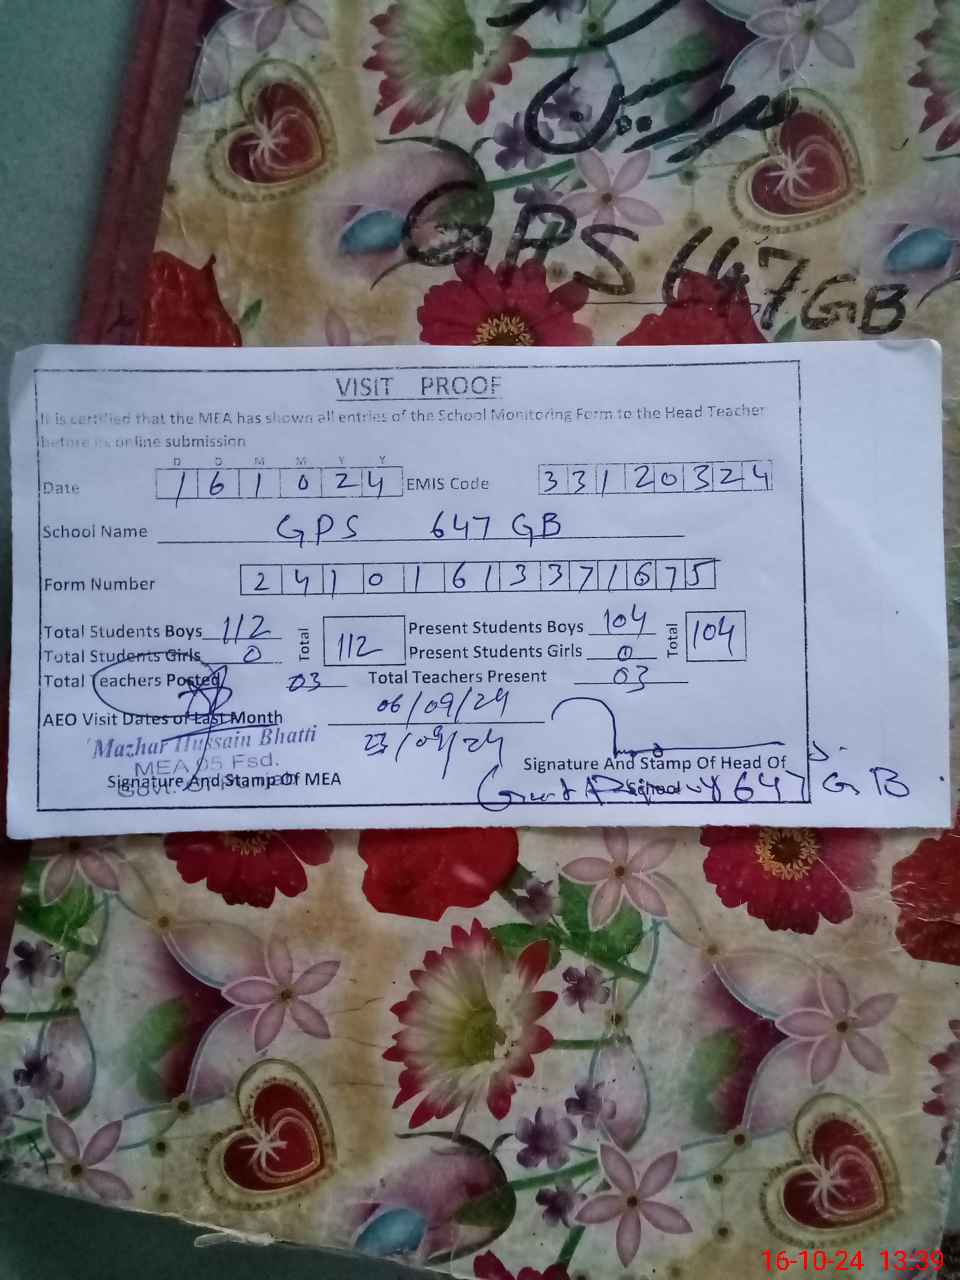 GPS 647 GB
VISIT PROOF
It is certified that the MEA has shown all entries of the School Monitoring Form to the Head Teacher
before its on line submission
D D M M Y Y
Date 161024 EMIS Code 33120324
School Name GPS 647 GB
Form Number 24101613371675
Total Students Boys 112 Total 112 Present Students Boys 104 Total 104
Total Students Girls 0 Present Students Girls 0
Total Teachers Posted 03 Total Teachers Present 03
AEO Visit Dates of Last Month 06/09/24
23/09/24
Mazhar Hussain Bhatti
MEA 05 Fsd.
Govt. Of
Signature And Stamp Of MEA
Signature And Stamp Of Head Of
School
647 GB
16-10-24 13:39